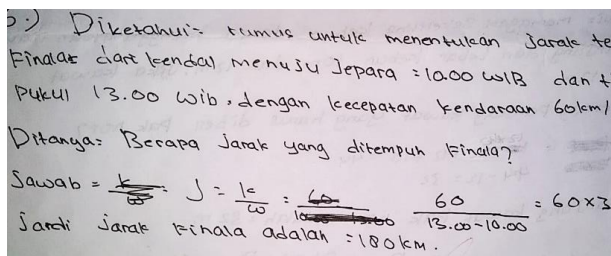 5.) Diketahui = rumus untuk menentukan jarak te
Finalas dari kendal menuju Jepara = 10.00 WIB dan t
Pukul 13.00 wib, dengan kecepatan kendaraan 60km/
Ditanya: Berapa jarak yang ditempuh Finala?
Jawab = J = k/w = 60/13.00-10.00 = 60x3
Jardi jarak Finala adalah = 180 KM.